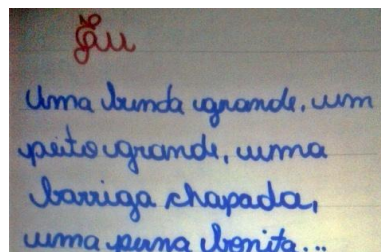 Eu
Uma bunda grande, um
peito grande, uma
barriga chapada,
uma perna bonita...